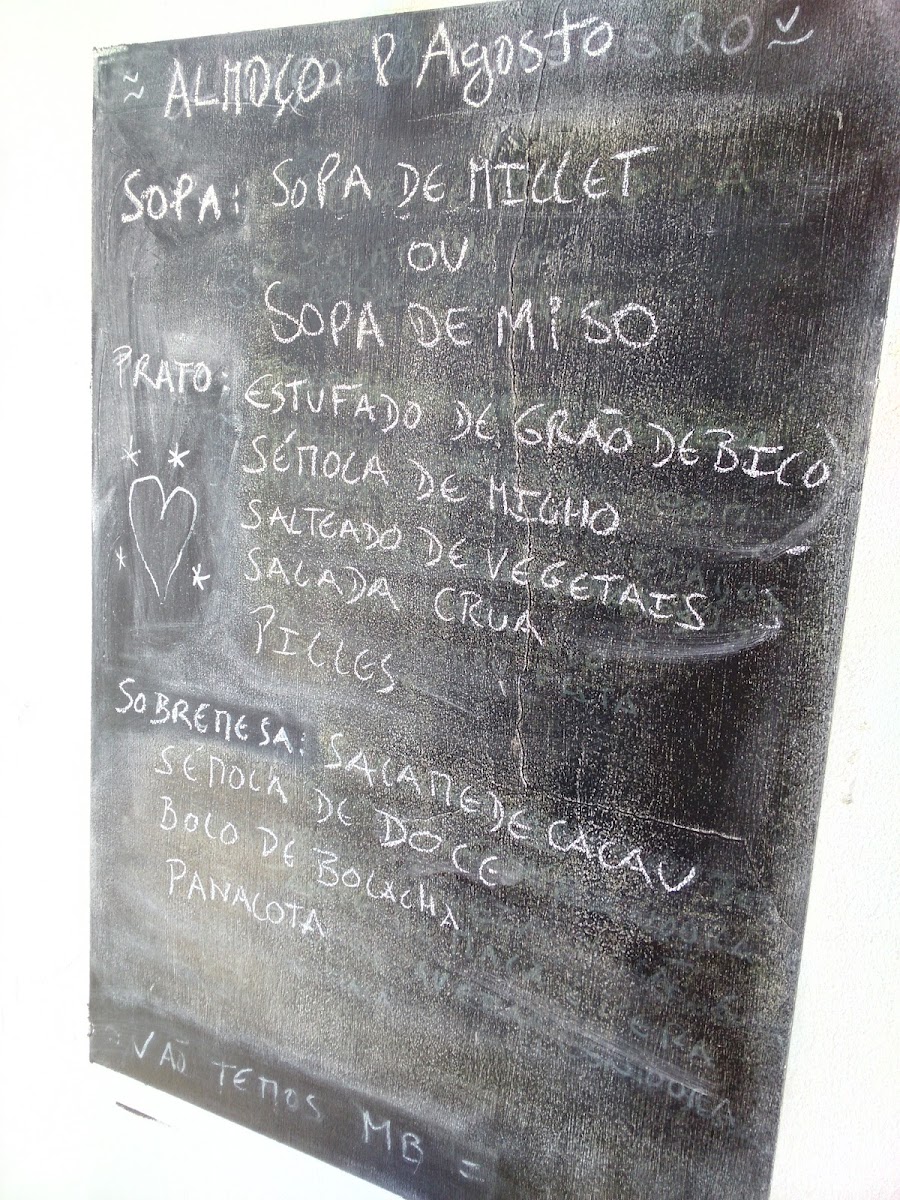 ≈ ALMOÇO 8 Agosto
SOPA: SOPA DE MILLET
OU
SOPA DE MiSO
PRATO: ESTUFADO DE GRÃO DE BICO
SÉMOLA DE MILHO
SALTEADO DE VEGETAIS
SALADA CRUA
PILLES
SOBREMESA: SALAME DE CACAU
SÉMOLA DE DOCE
BOLO DE BOLACHA
PANACOTA
= NÃO TEMOS MB =